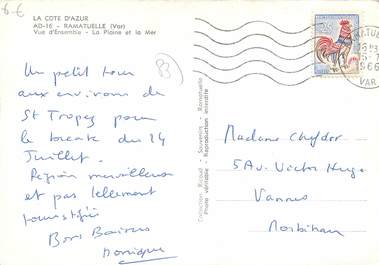 6 €
LA COTE D'AZUR
AD-16 - RAMATUELLE (Var)
Vue d'Ensemble - La Plaine et la Mer
83
Un petit tour
aux environs de
St Tropez pour
le break du 14
Juillet.
Région merveilleuse
et pas tellement
touristifiée
Bons Baisers
Monique
Collection Rinaud - Souvenirs - Ramatuelle
Photo véritable - Reproduction interdite
1966
VAR
Madame
5 Av. Victor Hugo
Vannes
Morbihan